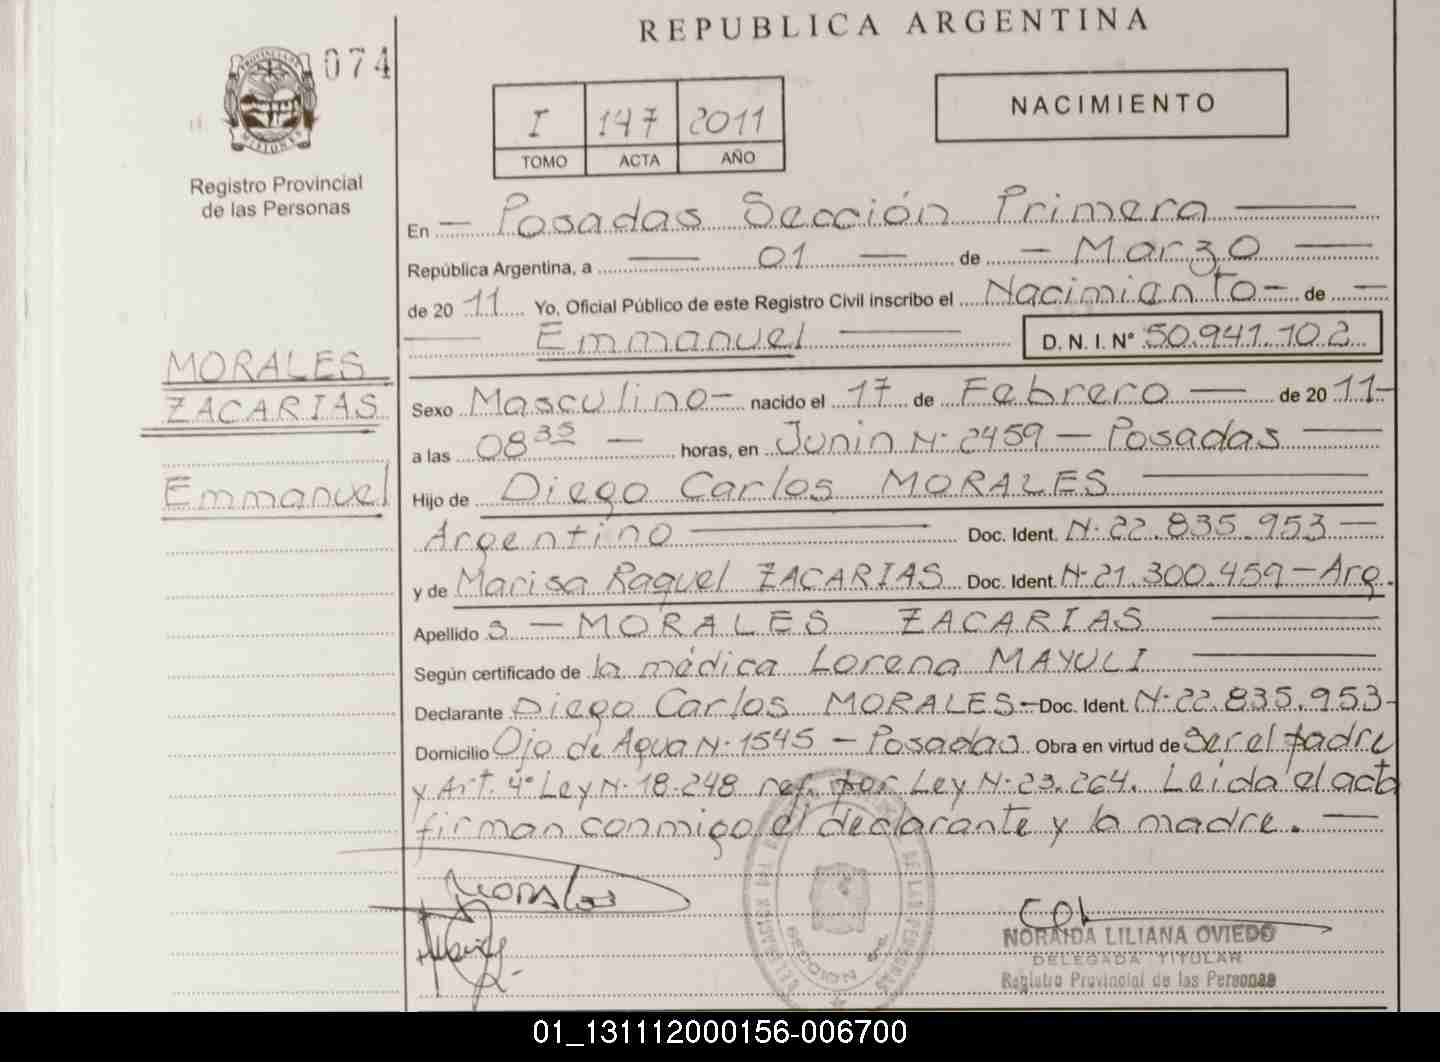 REPUBLICA ARGENTINA
074
I 147 2011
TOMO ACTA AÑO
NACIMIENTO
Registro Provincial
de las Personas
En — Posadas Sección Primera —
República Argentina, a — 01 — de — Marzo —
de 2011 Yo, Oficial Público de este Registro Civil inscribo el Nacimiento — de —
— Emmanuel — D. N. I. N° 50.941.102
MORALES
ZACARIAS
Emmanuel
Sexo Masculino — nacido el 17 de Febrero — de 2011 —
a las 08 35 — horas, en Junin N° 2459 — Posadas —
Hijo de Diego Carlos MORALES —
Argentino — Doc. Ident. N° 22.835.953 —
y de Marisa Raquel ZACARIAS Doc. Ident. N° 21.300.459 — Arg.
Apellido s — MORALES ZACARIAS —
Según certificado de la médica Lorena MAYULI —
Declarante Diego Carlos MORALES — Doc. Ident. N° 22.835.953 -
Domicilio Ojo de Agua N° 1545 — Posadas Obra en virtud de Ser el padre
y Art. 4° Ley N° 18.248 ref. por Ley N° 23.264. Leida el acta
firman conmigo el declarante y la madre. —
Morales
NORAIDA LILIANA OVIEDO
DELEGADA TITULAR
Registro Provincial de las Personas
01_131112000156-006700